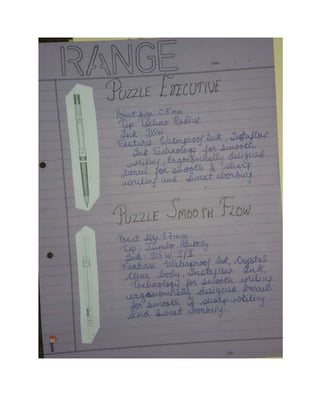 RANGE
Date
PUZZLE EXECUTIVE
Point Size: 0.8 mm
Tip: Radius
Ink: DSW
Feature: Waterproof Ink, Instaflow
Ink Technology for smooth
writing, Ergonomically designed
barrel for smooth & sharp
writing and Sweat
PUZZLE SMOOTH FLOW
Point Size: 0.7mm
Tip: Jumbo
Ink: DSW I/II
Feature: Waterproof Ink, Crystal
Clear body, Instaflow Ink,
Technology for smooth writing,
designed barrel
for smooth & sharp writing
and Sweat